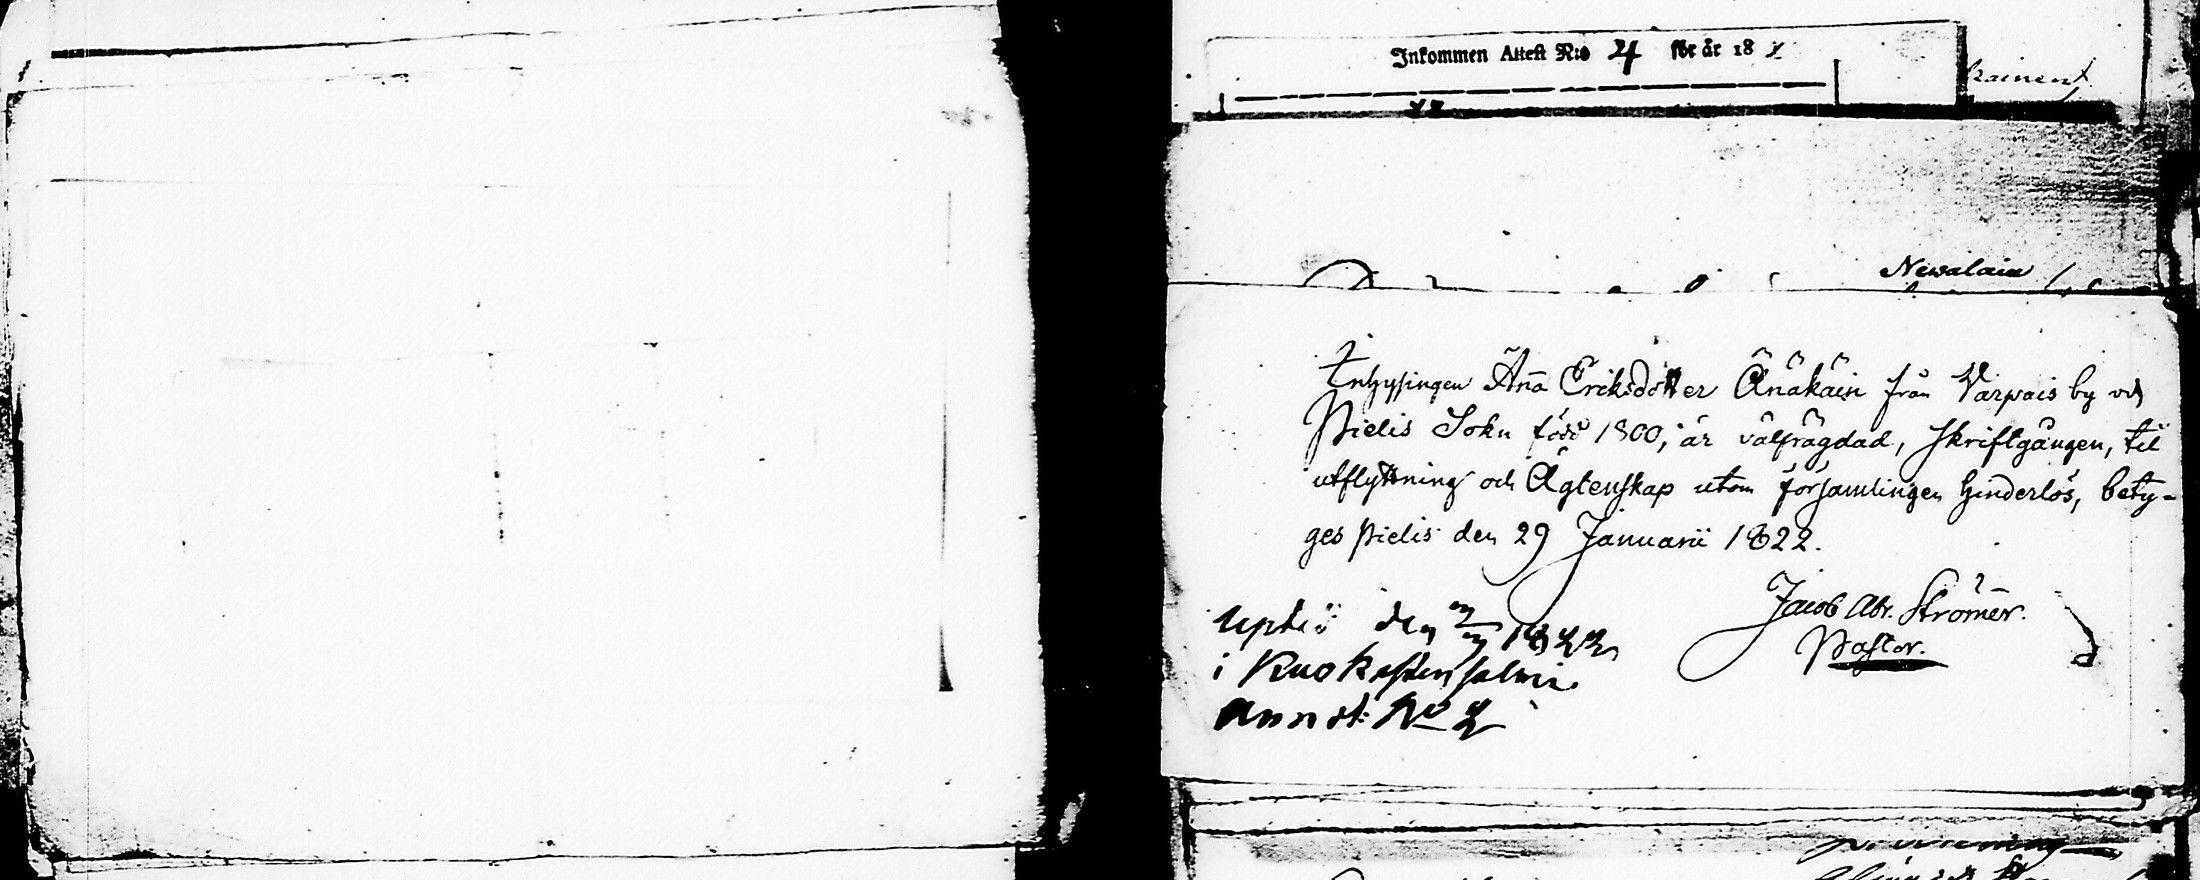 Inkommen Attest N:o 4 för år 18
Newalain
Inhysingen Aña Eriksdotter Änäkäin från Varpais by och
Pielis Sokn född 1800, är välfrägdad, skriftgången, til
utflyttning och Ägtenskap utom församlingen hinderlös, bety-
ges Pielis den 29 Januarii 1822.
Jacob Abr. Strömer.
Pastor.
den 1822
i Kuokastensalmi
annot: No 2